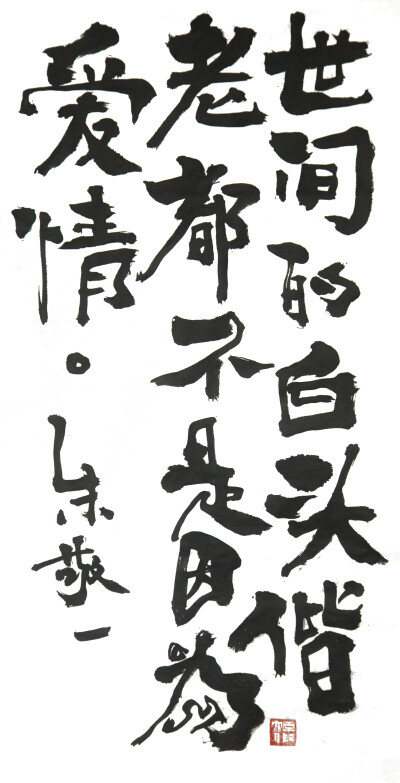 世间的白头偕
老都不是因为
爱情。朱敬一